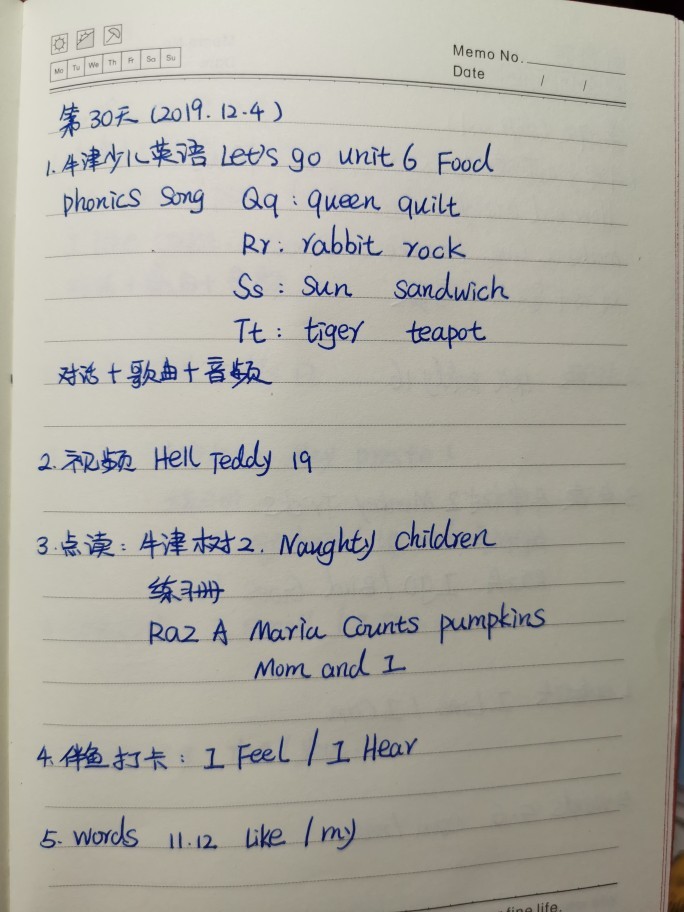 Mo Tu We Th Fr Sa Su
Memo No.
Date / /
第30天 (2019.12.4)
1.牛津少儿英语 Let's go unit 6 Food
Phonics Song Qq : queen quilt
Rr : rabbit rock
Ss : sun sandwich
Tt : tiger teapot
对话+歌曲+音频
2.视频 Hell Teddy 19
3.点读: 牛津树2. Naughty Children
练习册
Raz A Maria Counts pumpkins
Mom and I
4.伴鱼打卡: I Feel / I Hear
5. words 11.12 like / my
fine life.